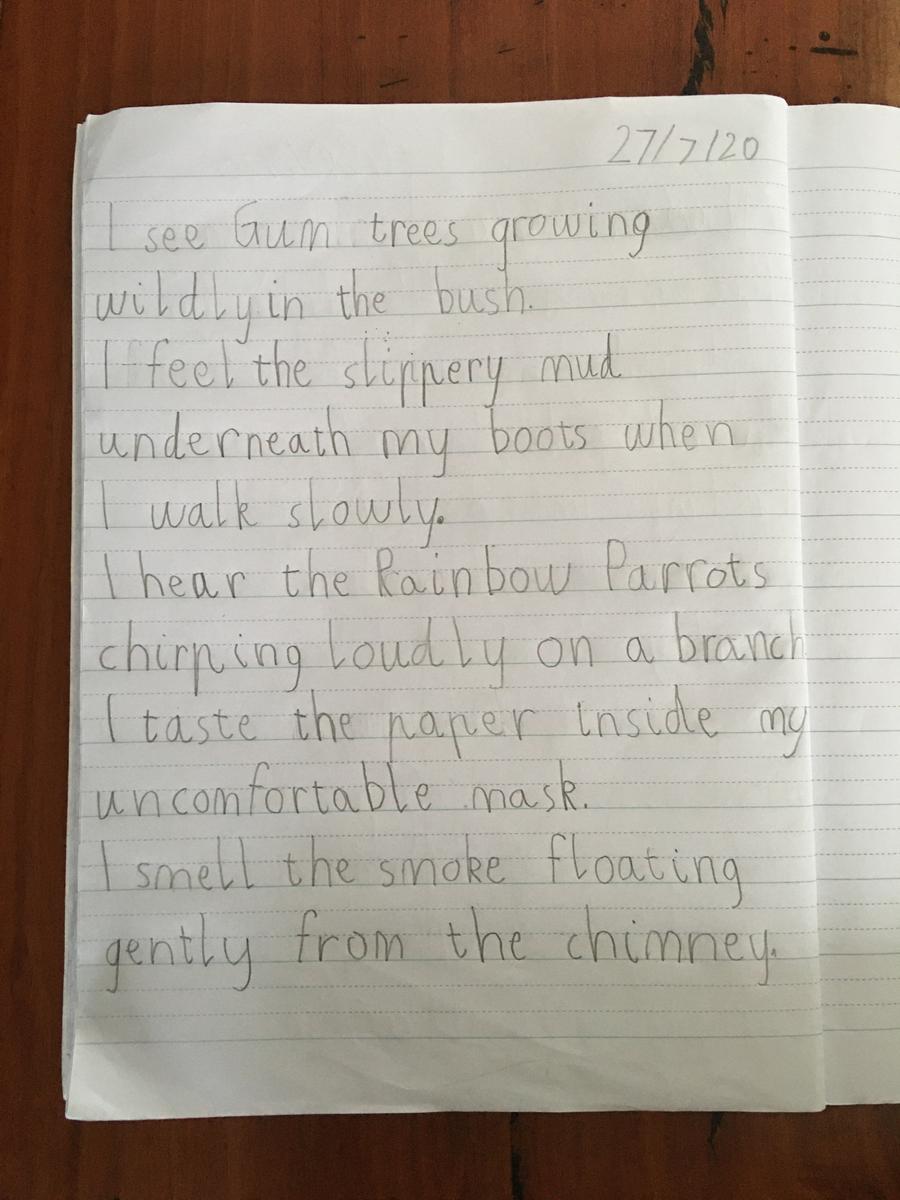 27/7/20
I see Gum trees growing
wildly in the bush.
I feel the slippery mud
underneath my boots when
I walk slowly.
I hear the Rainbow Parrots
chirping loudly on a branch
I taste the paper inside my
uncomfortable mask.
I smell the smoke floating
gently from the chimney.